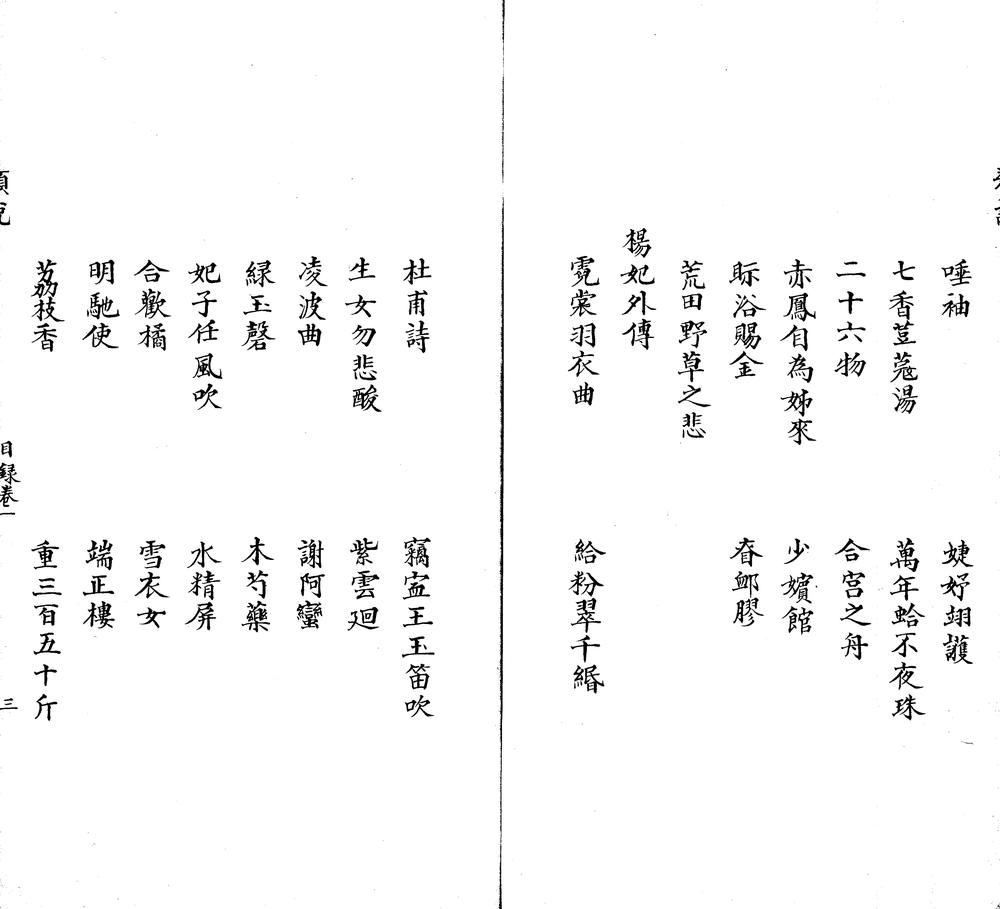 唾袖　婕妤翊護
七香荳蔻湯　萬年蛤不夜珠
二十六物　合宮之舟
赤鳳自為姊來　少嬪館
眎浴賜金　昚卹膠
荒田野草之悲
楊妃外傳
霓裳羽衣曲　給粉翠千緡
杜甫詩　竊寍王玉笛吹
生女勿悲酸　紫雲廻
凌波曲　謝阿蠻
緑玉磬　木芍藥
妃子任風吹　水精屏
合歡橘　雪衣女
明駞使　端正樓
茘枝香　重三百五十斤
目録卷一　三